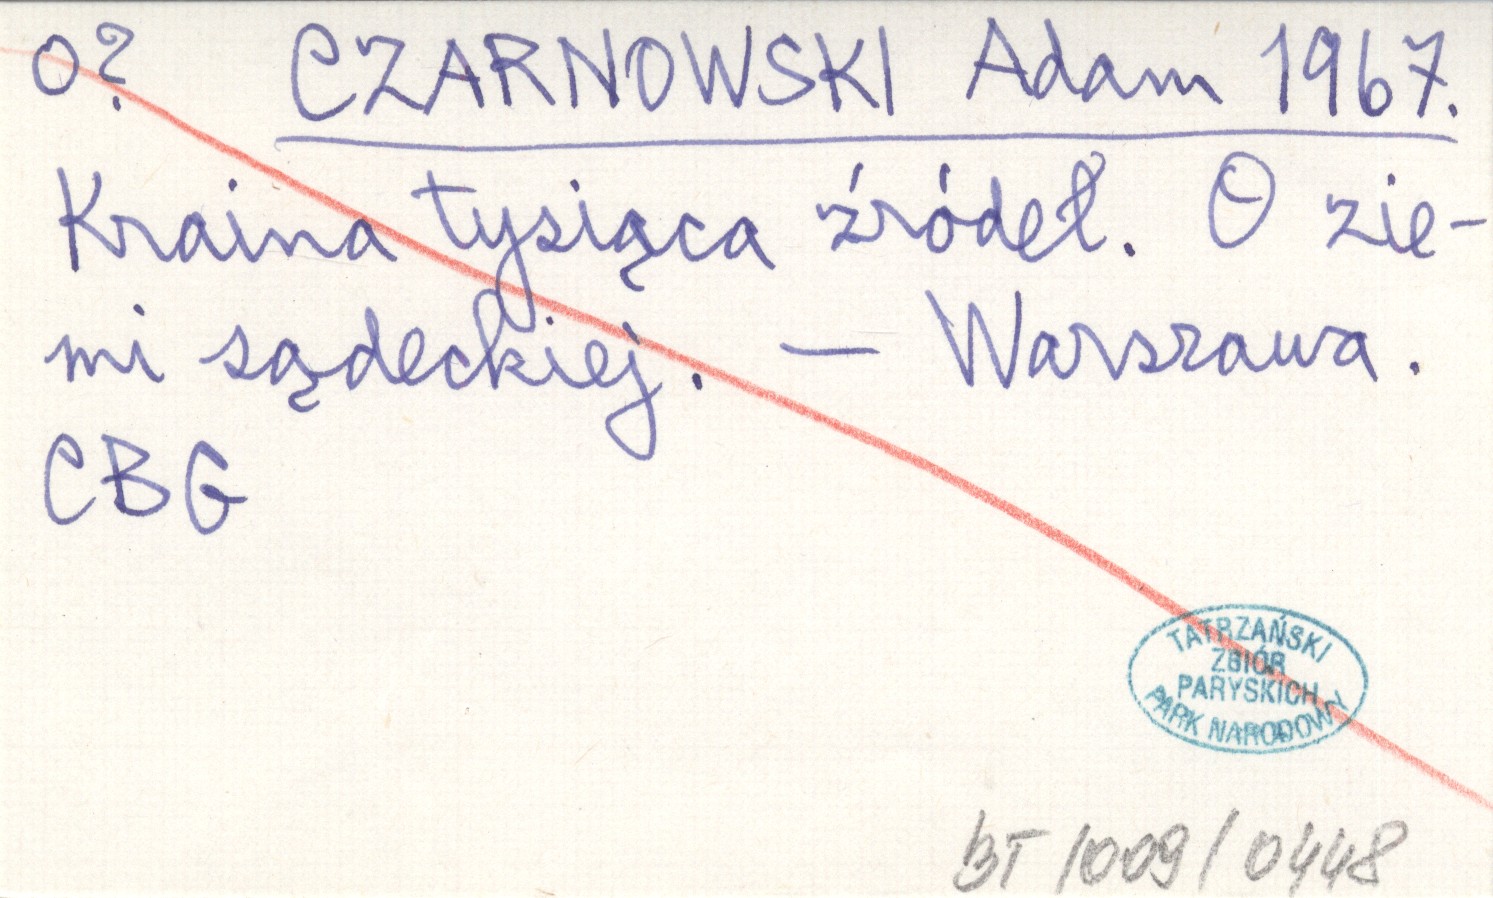 o? CZARNOWSKI Adam 1967.
Kraina tysiąca źródeł. O zie-
mi sądeckiej. — Warszawa.
CBG
TATRZAŃSKI
ZBIÓR
PARYSKICH
PARK NARODOWY
BT/009/0448